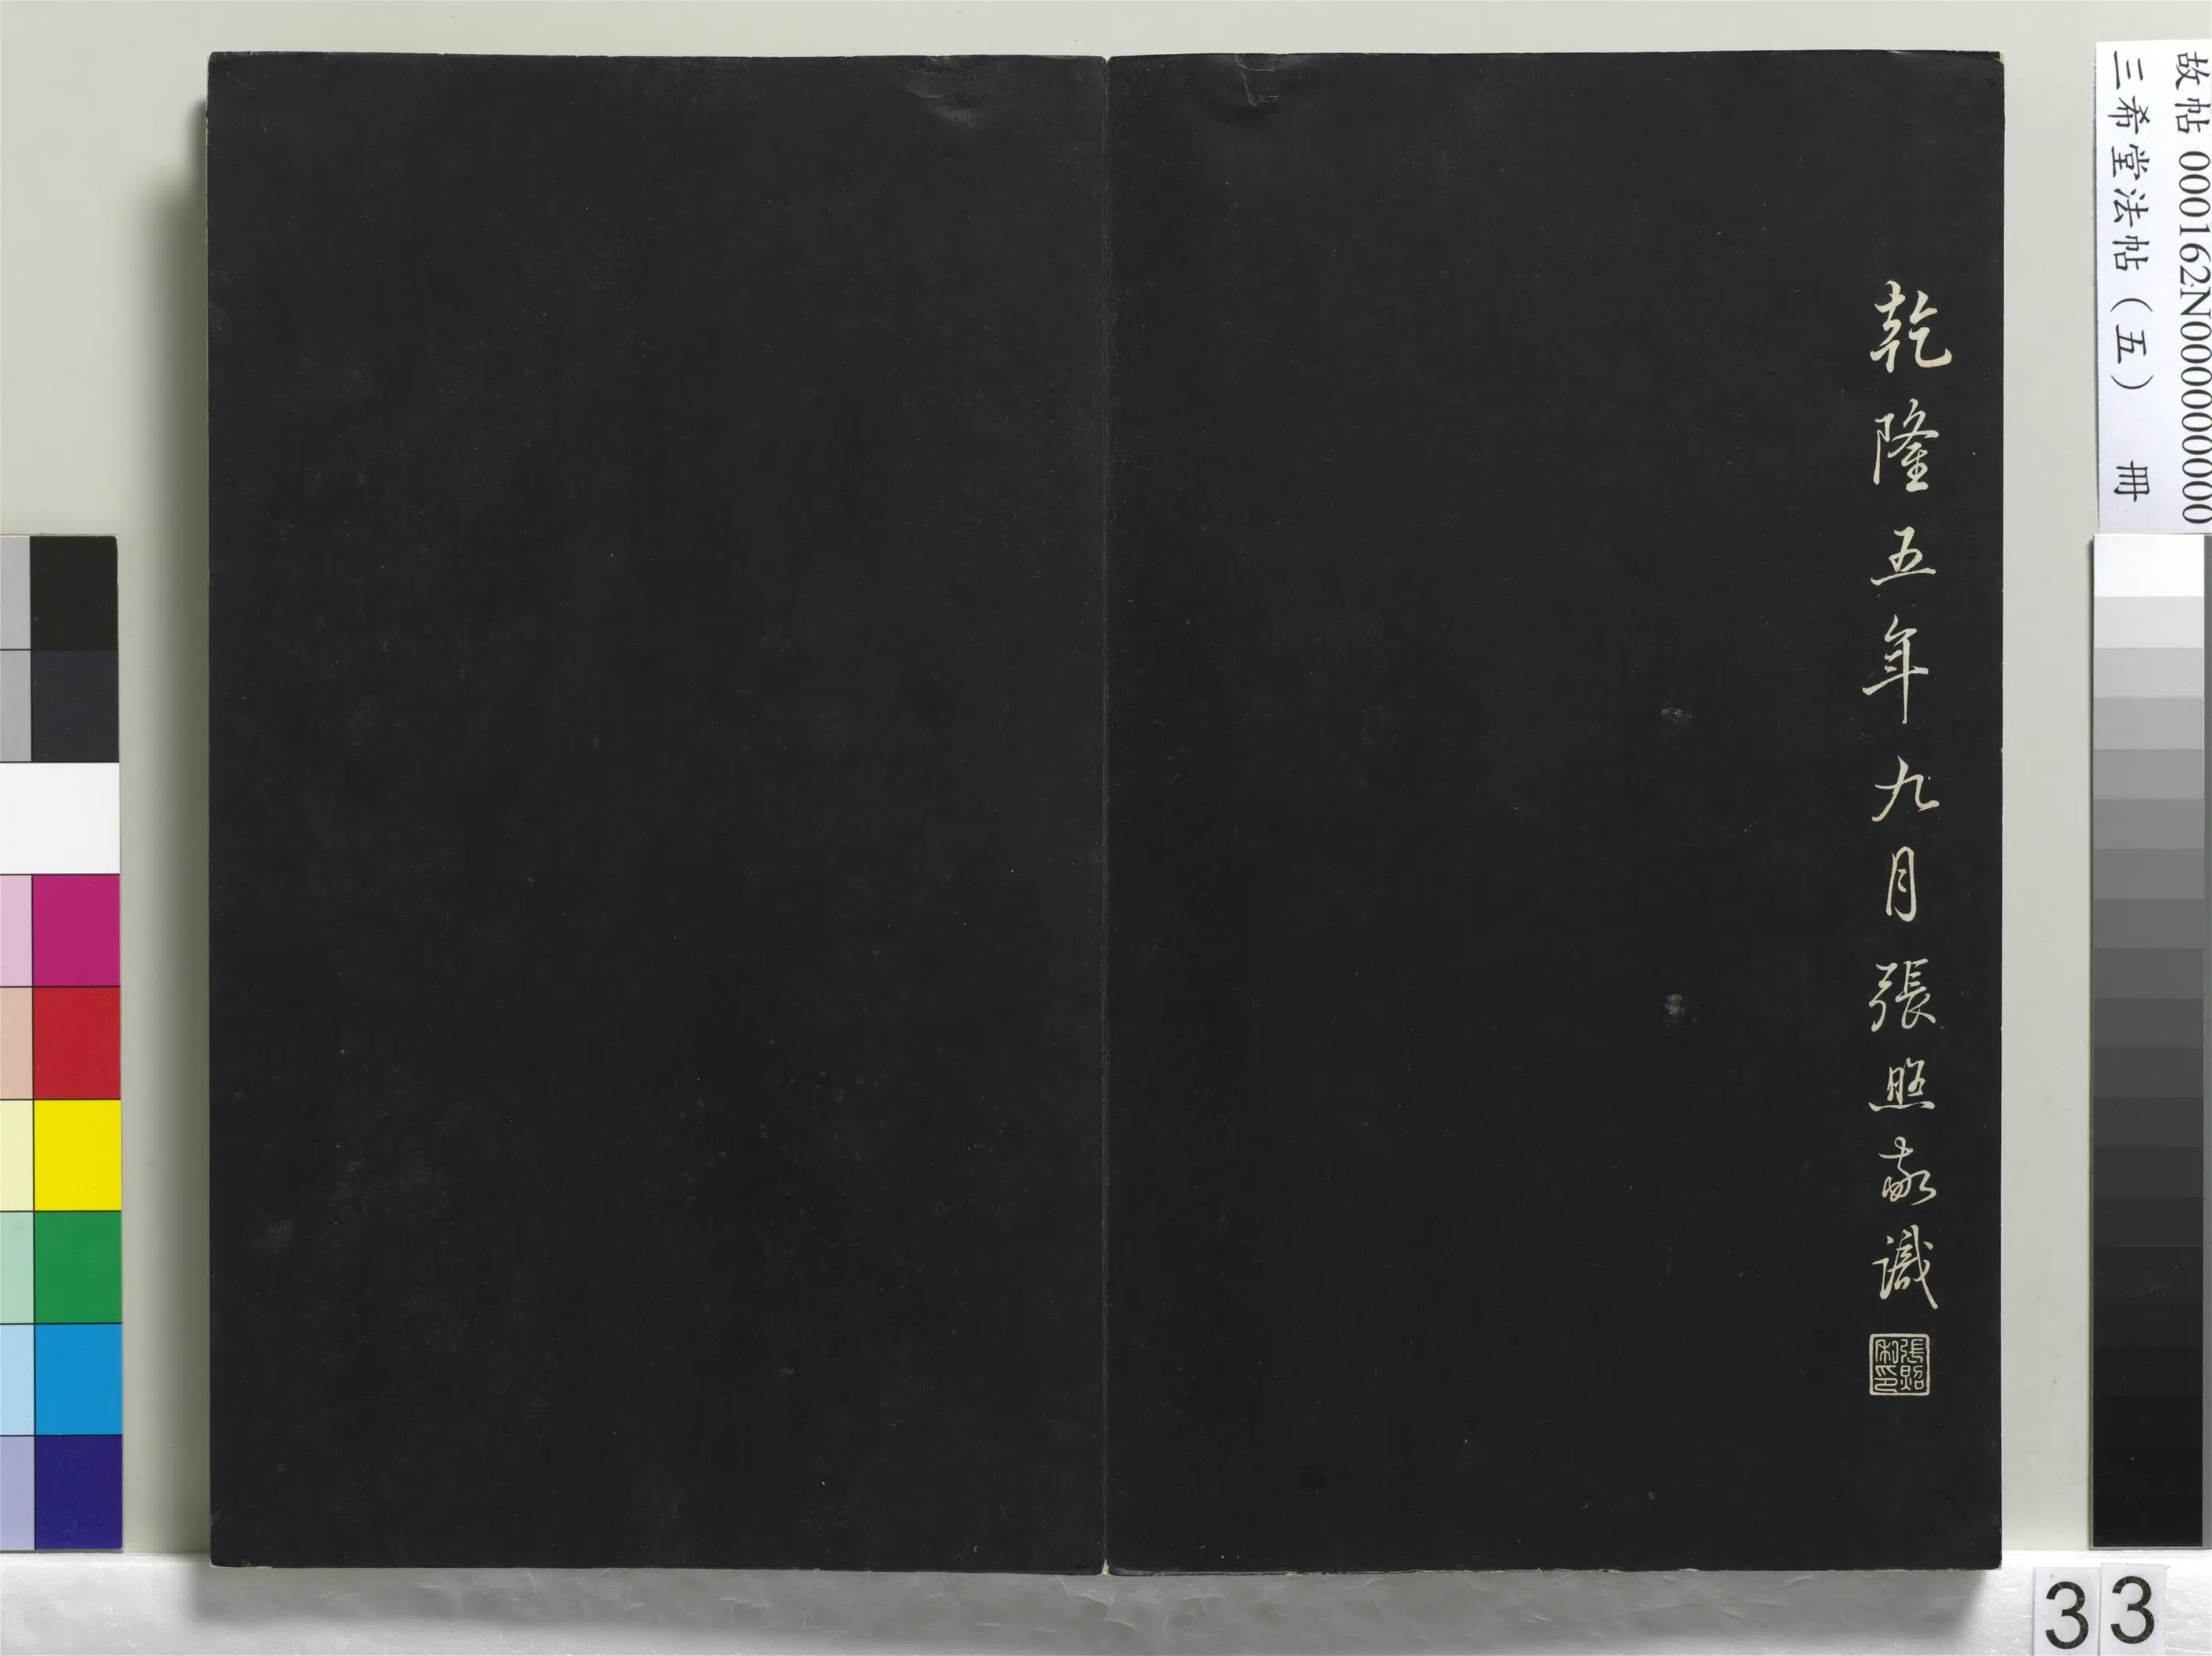 故帖 000162N000000000
三希堂法帖（五） 冊
乾隆五年九月張照敬識
張照
私印
33